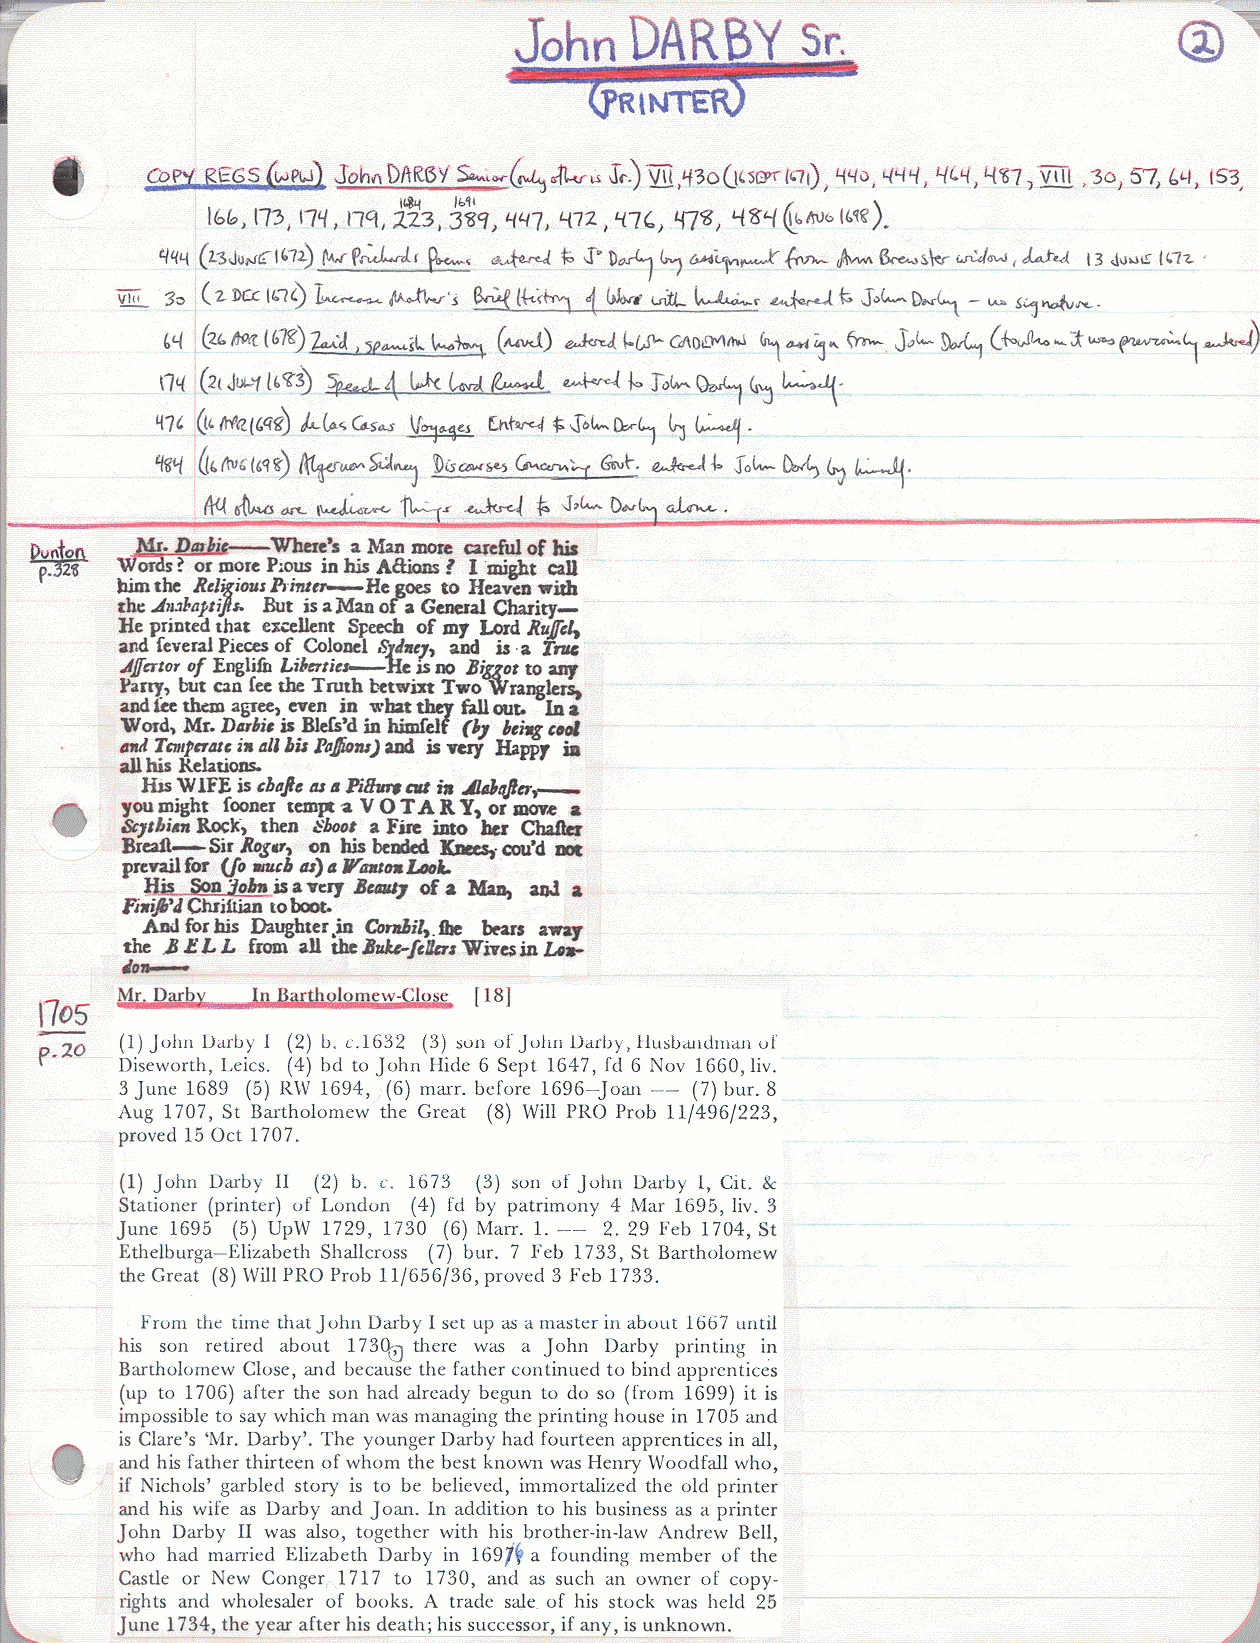 John DARBY Sr.
2
(PRINTER)
COPY REGS (WPW) John DARBY Senior (only other is Jr.) VII, 430 (16 SEPT 1671), 440, 444, 464, 487, VIII, 30, 57, 64, 153,
1684 1691
166, 173, 174, 179, 223, 389, 447, 472, 476, 478, 484 (16 AUG 1698).
444 (23 JUNE 1672) Mr Prichards Poems entered to Jo Darby by assignment from Ann Brewster widow, dated 13 JUNE 1672.
VIII 30 (2 DEC 1676) Increase Mother's Brief History of Warr with Indians entered to John Darby – no signature.
64 (26 APR 1678) Zaid, spanish history (novel) entered to Wm CADEMAN by assign from John Darby (to whom it was previously entered)
174 (21 JULY 1683) Speech of late Lord Russel entered to John Darby by himself.
476 (16 APR 1698) de las Casas Voyages Entered to John Darby by himself.
484 (16 AUG 1698) Algernon Sidney Discourses Concerning Govt. entered to John Darby by himself.
All others are mediocre things entered to John Darby alone.
Dunton
p.328
Mr. Darbie——Where's a Man more careful of his
Words? or more Pious in his Actions? I might call
him the Religious Printer——He goes to Heaven with
the Anabaptiſts. But is a Man of a General Charity—
He printed that excellent Speech of my Lord Ruſſel,
and ſeveral Pieces of Colonel Sydney, and is a True
Aſſertor of Engliſh Liberties——He is no Biggot to any
Party, but can ſee the Truth betwixt Two Wranglers,
and ſee them agree, even in what they fall out. In a
Word, Mr. Darbie is Bleſs'd in himſelf (by being cool
and Temperate in all his Paſſions) and is very Happy in
all his Relations.
His WIFE is chaſte as a Picture cut in Alabaſter,——
you might ſooner tempt a VOTARY, or move a
Scythian Rock, then Shoot a Fire into her Chaſter
Breaſt——Sir Roger, on his bended Knees, cou'd not
prevail for (ſo much as) a Wanton Look.
His Son John is a very Beauty of a Man, and a
Finiſh'd Chriſtian to boot.
And for his Daughter in Cornhil, ſhe bears away
the BELL from all the Buke-ſellers Wives in Lon-
don——
1705
p.20
Mr. Darby In Bartholomew-Close [18]
(1) John Darby I (2) b. c.1632 (3) son of John Darby, Husbandman of
Diseworth, Leics. (4) bd to John Hide 6 Sept 1647, fd 6 Nov 1660, liv.
3 June 1689 (5) RW 1694, (6) marr. before 1696–Joan —— (7) bur. 8
Aug 1707, St Bartholomew the Great (8) Will PRO Prob 11/496/223,
proved 15 Oct 1707.
(1) John Darby II (2) b. c. 1673 (3) son of John Darby I, Cit. &
Stationer (printer) of London (4) fd by patrimony 4 Mar 1695, liv. 3
June 1695 (5) UpW 1729, 1730 (6) Marr. 1. —— 2. 29 Feb 1704, St
Ethelburga–Elizabeth Shallcross (7) bur. 7 Feb 1733, St Bartholomew
the Great (8) Will PRO Prob 11/656/36, proved 3 Feb 1733.
From the time that John Darby I set up as a master in about 1667 until
his son retired about 1730, there was a John Darby printing in
Bartholomew Close, and because the father continued to bind apprentices
(up to 1706) after the son had already begun to do so (from 1699) it is
impossible to say which man was managing the printing house in 1705 and
is Clare's ‘Mr. Darby’. The younger Darby had fourteen apprentices in all,
and his father thirteen of whom the best known was Henry Woodfall who,
if Nichols' garbled story is to be believed, immortalized the old printer
and his wife as Darby and Joan. In addition to his business as a printer
John Darby II was also, together with his brother-in-law Andrew Bell,
who had married Elizabeth Darby in 1696, a founding member of the
Castle or New Conger 1717 to 1730, and as such an owner of copy-
rights and wholesaler of books. A trade sale of his stock was held 25
June 1734, the year after his death; his successor, if any, is unknown.